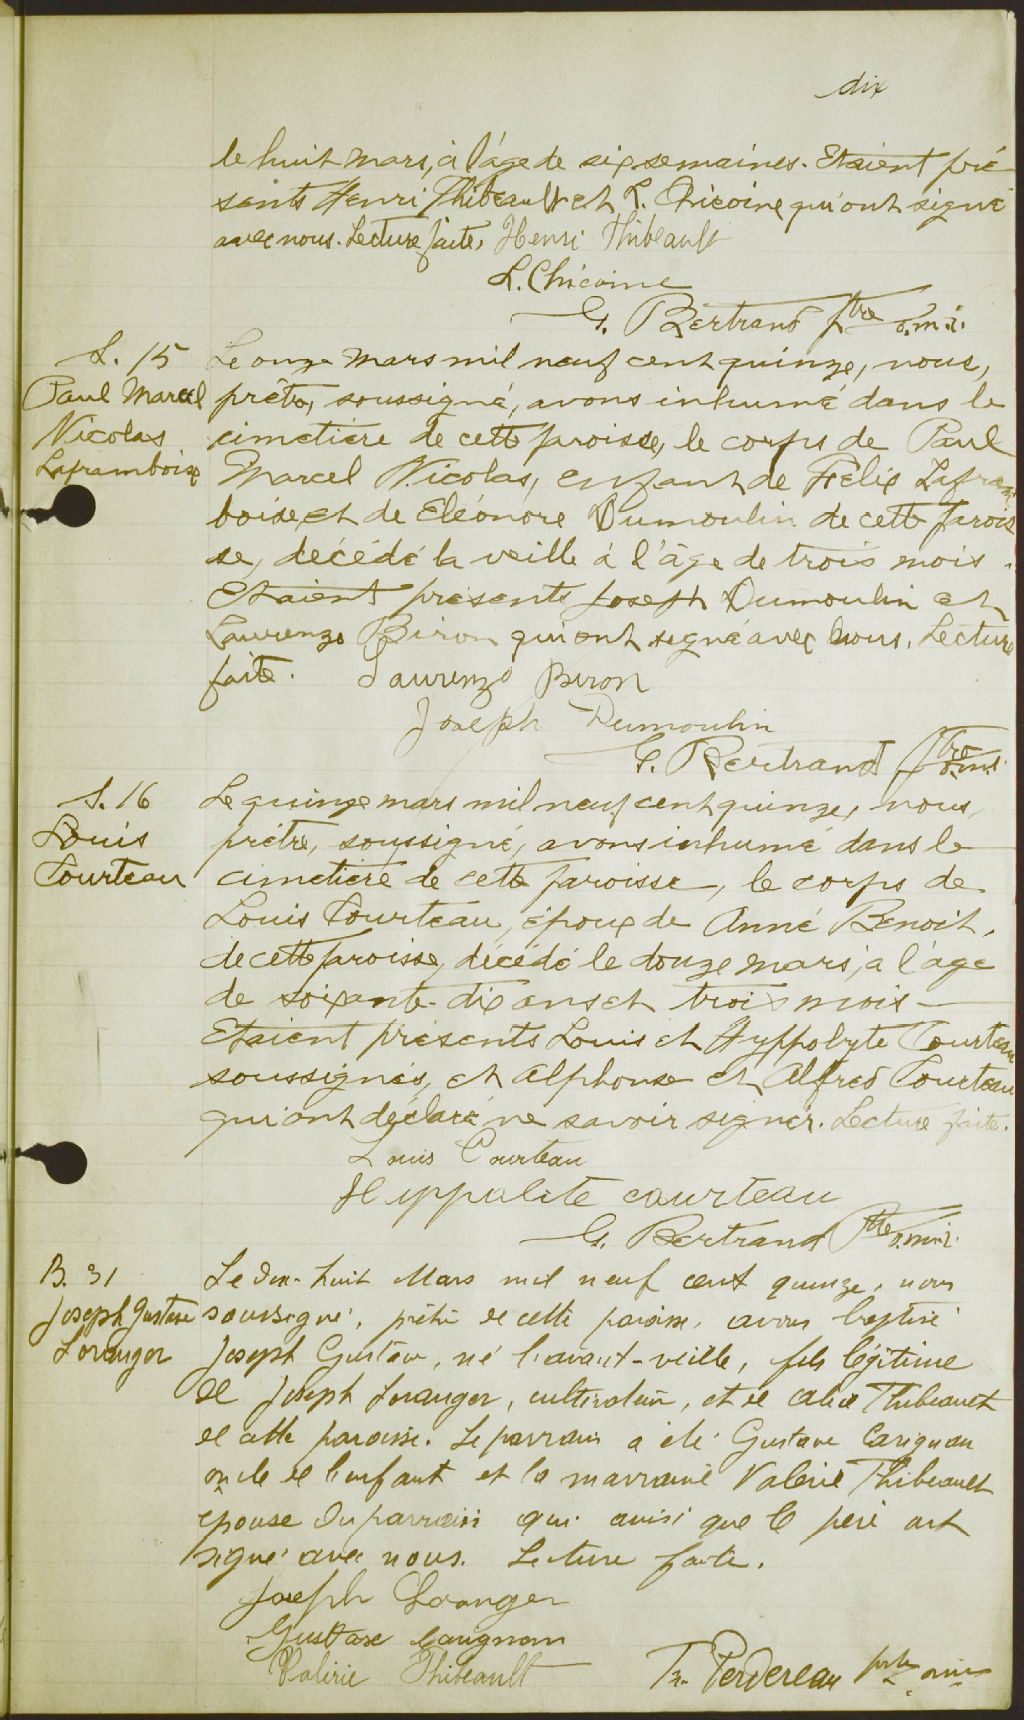 dix
le huit mars, à l'âge de six semaines. Etaient pré
sents Henri Thibeault et L. Chicoine qui ont signé
avec nous. Lecture faite, Henri Thibeault
L. Chicoine
G. Bertrand ptre o.m.i.
S. 15
Paul Marcel
Nicolas
Laframboise
Le onze mars mil neuf cent quinze, nous,
prêtre, soussigné, avons inhumé dans le
cimetière de cette paroisse, le corps de Paul
Marcel Nicolas, enfant de Félix Lafram
boise, et de Eléonore Dumoulin de cette parois
se, décédé la veille à l'âge de trois mois.
Etaient présents Joseph Dumoulin et
Laurenzo Biron qui ont signé avec nous. Lecture
faite. Laurenzo Biron
Joseph Dumoulin
G. Bertrand ptre o.m.i.
S. 16
Louis
Courteau
Le quinze mars mil neuf cent quinze, nous,
prêtre, soussigné, avons inhumé dans le
cimetière de cette paroisse, le corps de
Louis Courteau, époux de Anné Benoit,
de cette paroisse, décédé le douze mars, à l'âge
de soixante-dix ans et trois mois
Etaient présents Louis et Hyppolyte Courteau
soussignés, et Alphonse et Alfred Courteau
qui ont déclaré ne savoir signer. Lecture faite.
Louis Courteau
Hippolite courteau
G. Bertrand ptre o.m.i.
B. 31
Joseph Gustave
Loranger
Le dix-huit Mars mil neuf cent quinze, nous
soussigné, prêtre de cette paroisse, avons baptisé
Joseph Gustave, né l'avant-veille, fils légitime
de Joseph Loranger, cultivateur, et de Alice Thibeault
de cette paroisse. Le parrain a été Gustave Carignan
oncle de l'enfant et la marraine Valérie Thibeault
épouse du parrain qui ainsi que le père ont
signé avec nous. Lecture faite.
Joseph Loranger
Gustave Carignan
Valérie Thibeault
Th. Perdereau ptre omi